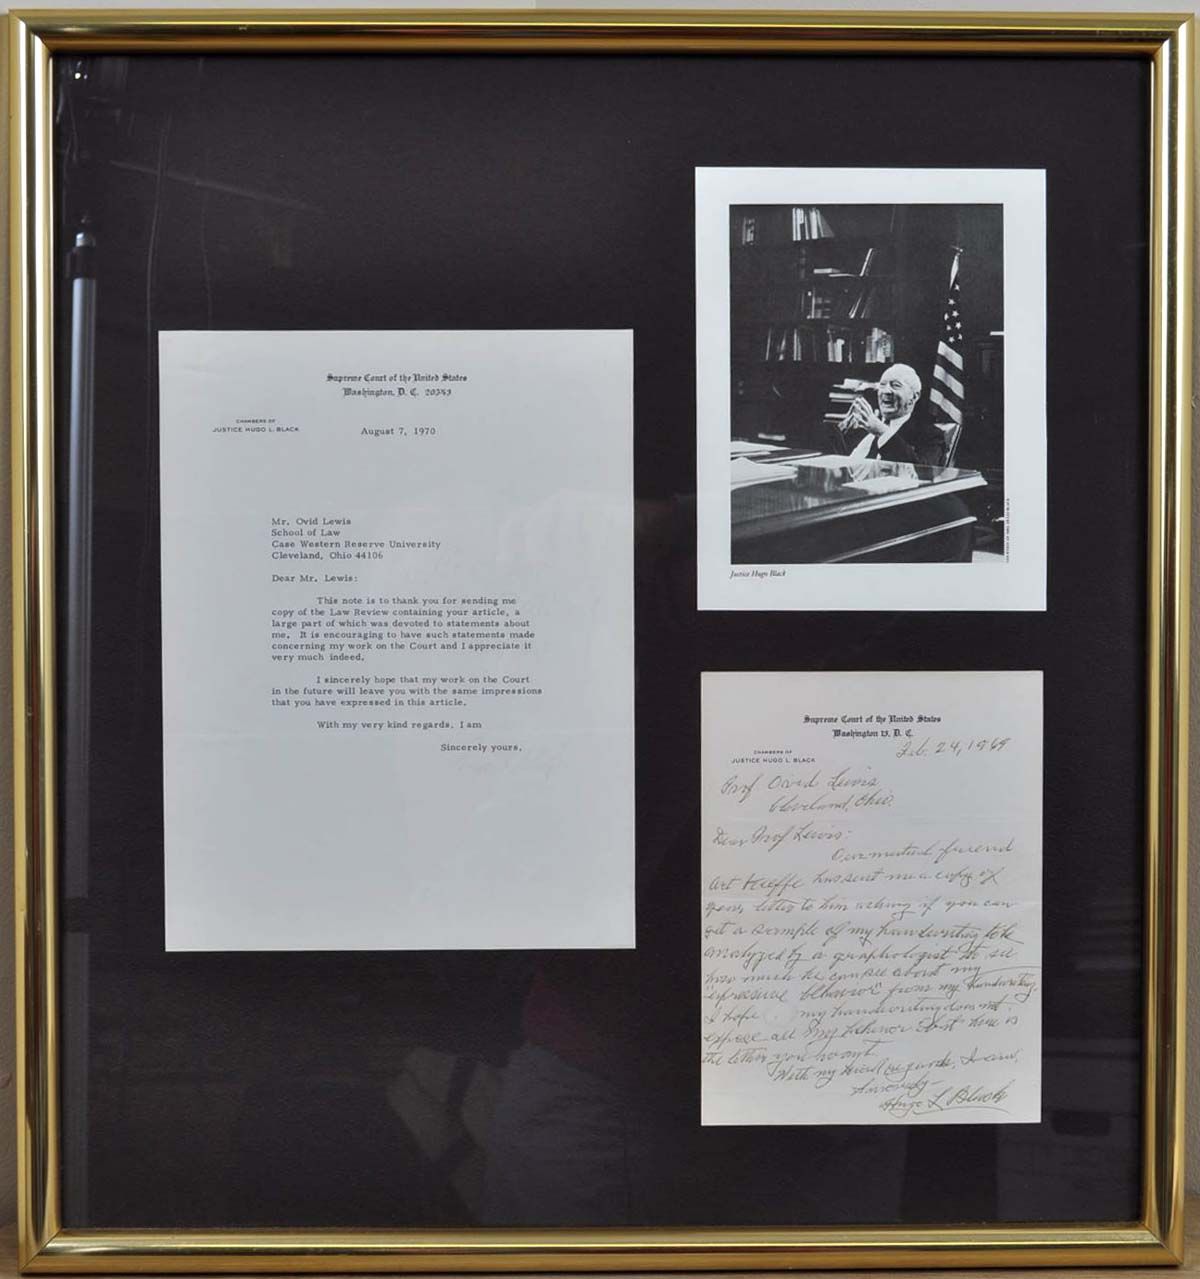 Supreme Court of the United States
Washington, D. C. 20543
CHAMBERS OF
JUSTICE HUGO L. BLACK
August 7, 1970
Mr. Ovid Lewis
School of Law
Case Western Reserve University
Cleveland, Ohio 44106
Dear Mr. Lewis:
This note is to thank you for sending me
copy of the Law Review containing your article, a
large part of which was devoted to statements about
me. It is encouraging to have such statements made
concerning my work on the Court and I appreciate it
very much indeed.
I sincerely hope that my work on the Court
in the future will leave you with the same impressions
that you have expressed in this article.
With my very kind regards, I am
Sincerely yours,
Justice Hugo Black
Supreme Court of the United States
Washington 13, D. C.
CHAMBERS OF
JUSTICE HUGO L. BLACK
Feb. 24, 1969
Prof Ovid Lewis
Cleveland, Ohio.
Dear Prof Lewis:
Our mutual friend
Art Keeffe has sent me a copy of
your letter to him asking if you can
get a sample of my handwriting to be
analyzed by a graphologist to see
how much he can see about my
"expressive behavior" from my handwriting.
I hope my handwriting does not
expose all my behavior but here is
the letter you want.
With my kind regards, I am,
Sincerely-
Hugo L Black